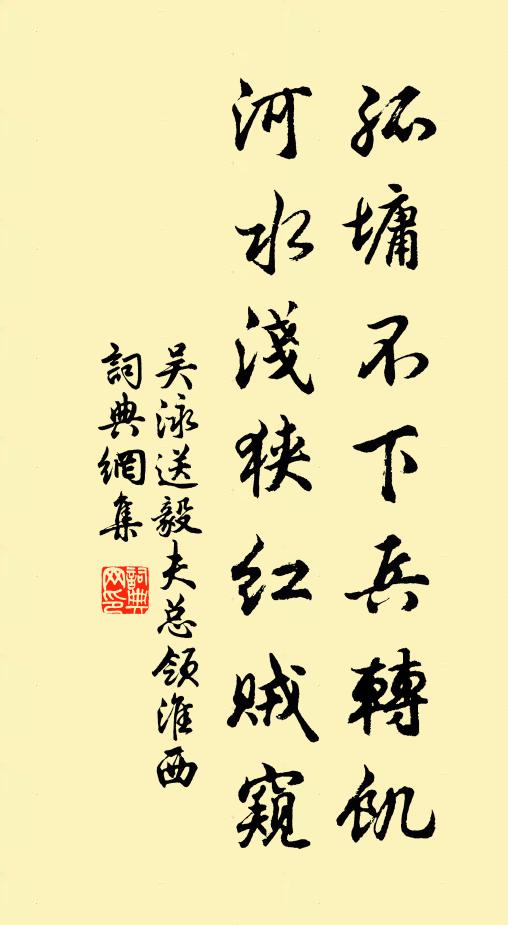 孤墉不下兵轉飢
河水淺狹红賊窺
吴泳送毅夫总领淮西
詞典網集
詞典網印